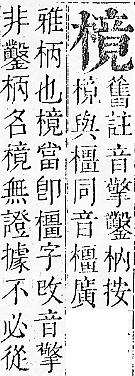 樈
舊註音擎鑿柄按
樈與橿同音橿廣
雅柄也樈當卽橿字攺音擎
非鑿柄名樈無證據不必從